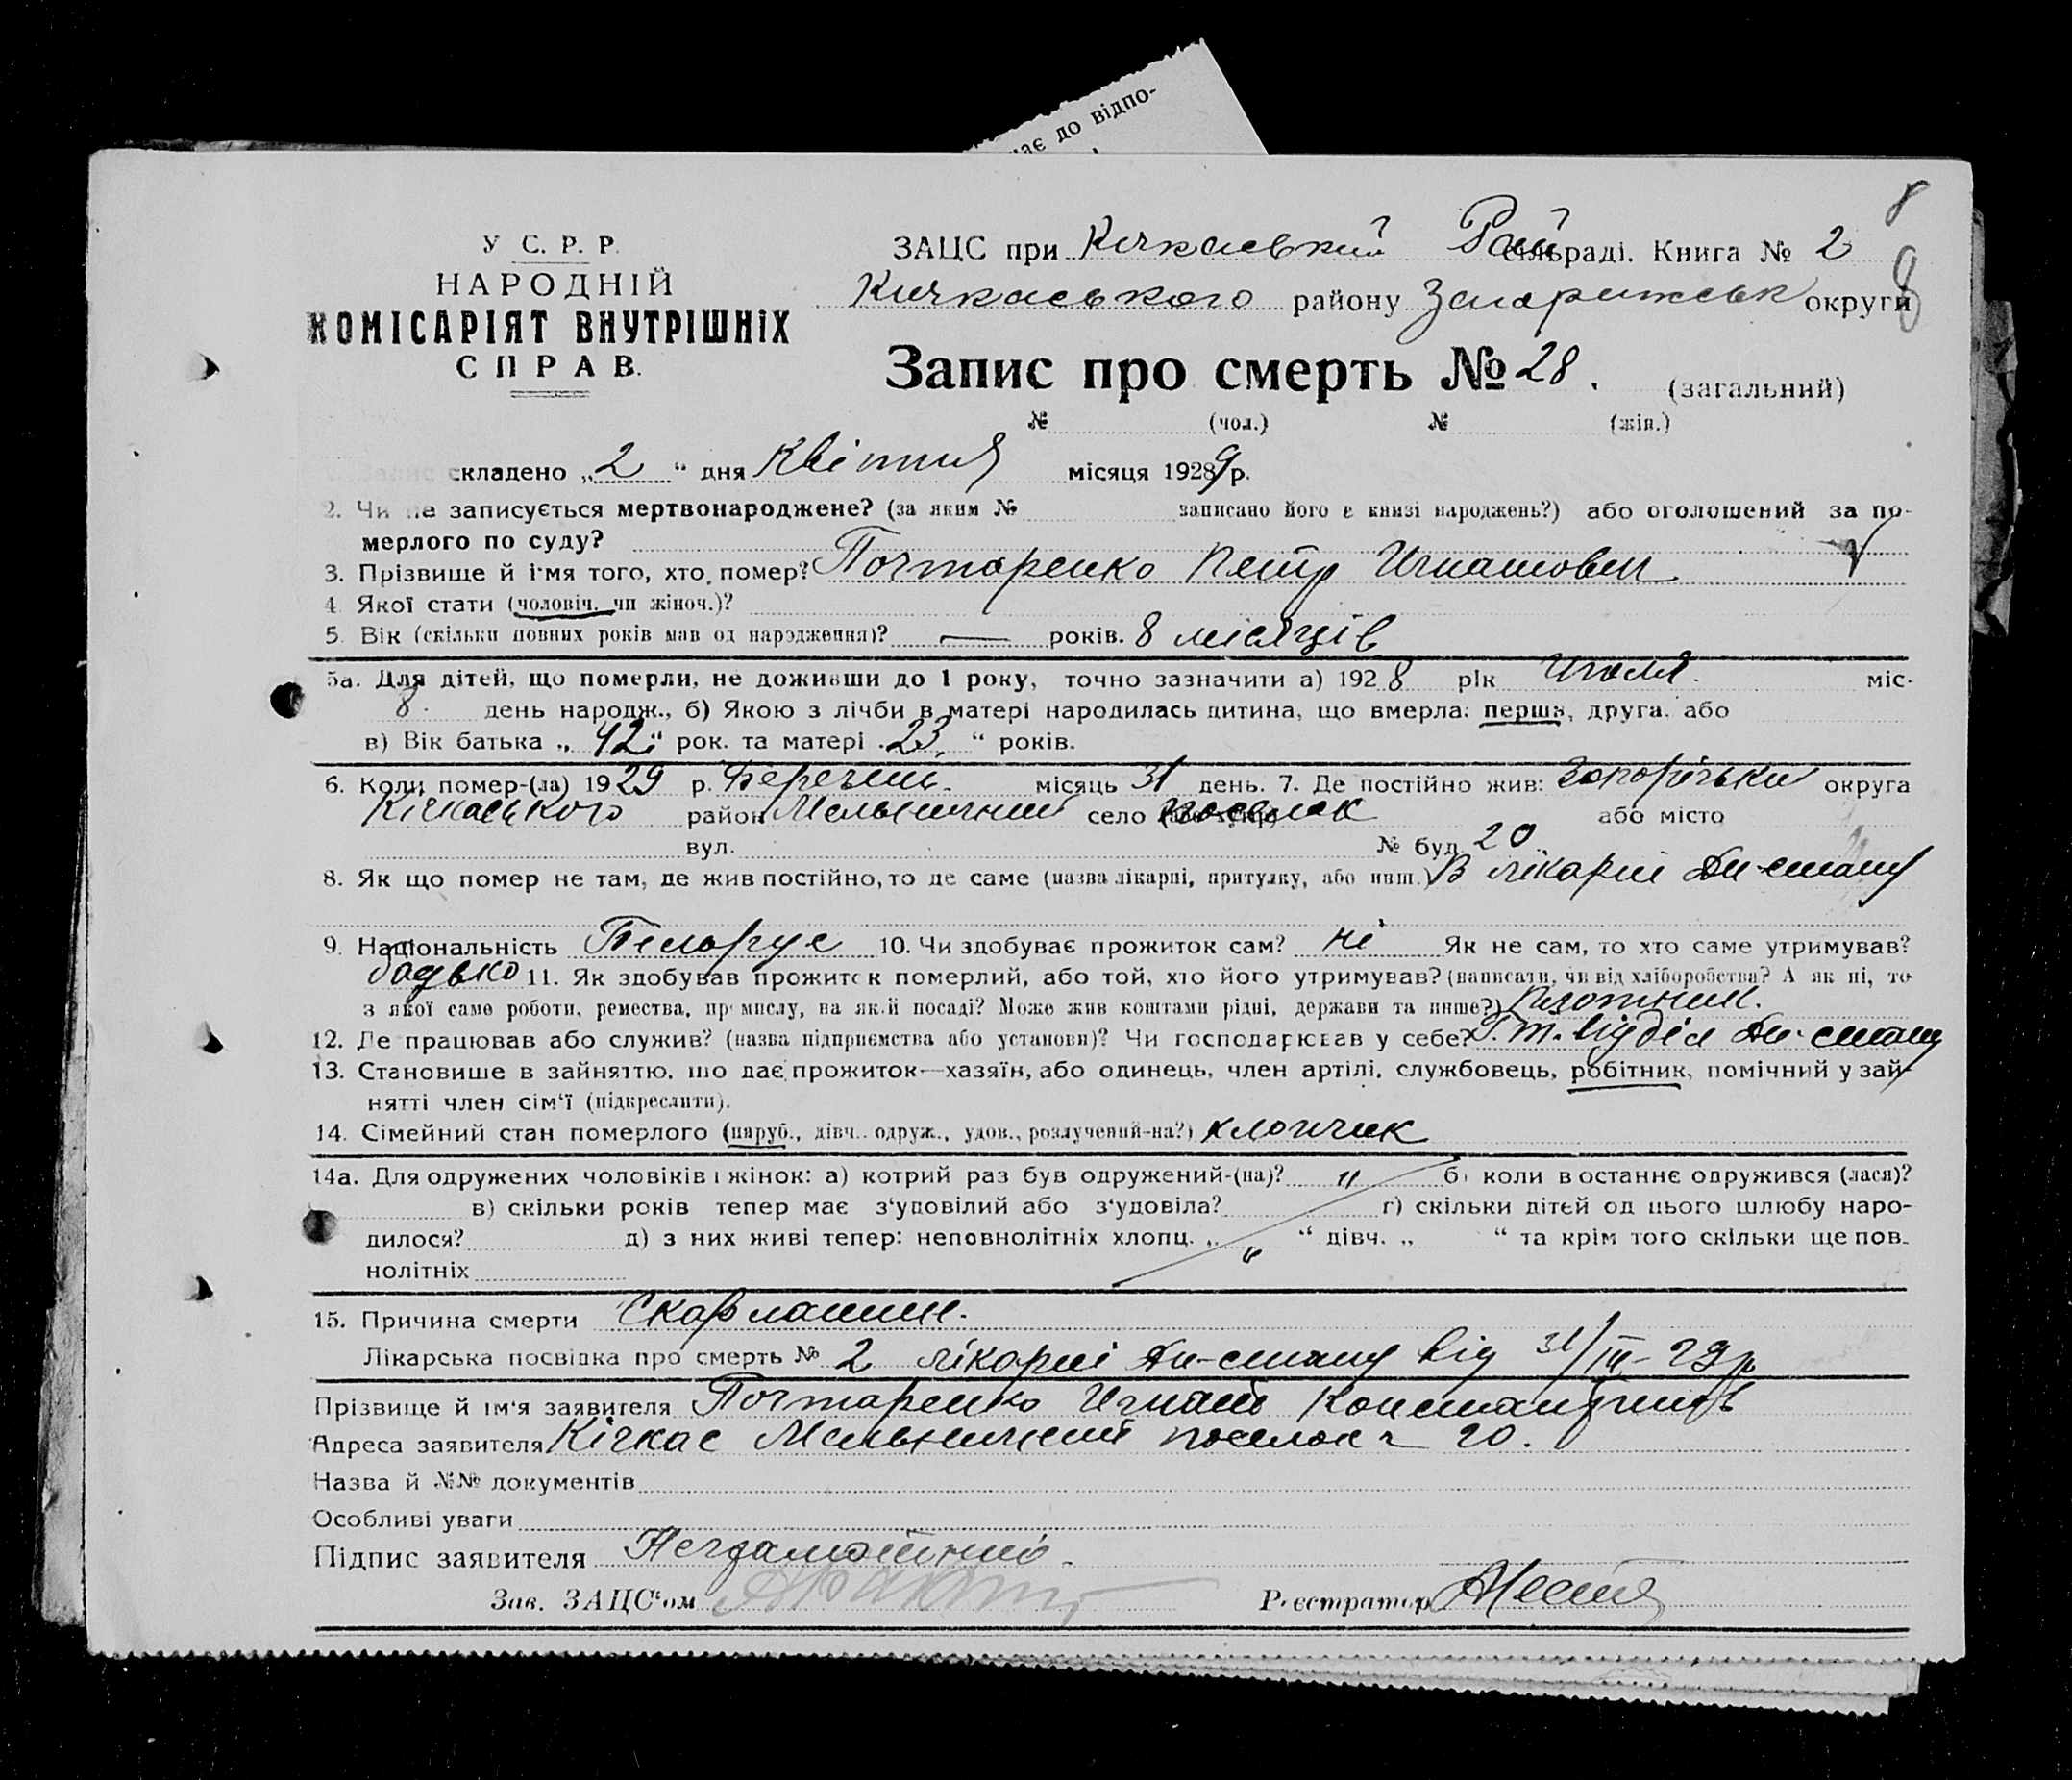 ає до відпо-
8
8
У С. Р. Р.
НАРОДНІЙ
КОМІСАРІЯТ ВНУТРІШНІХ
СПРАВ.
ЗАЦС при Кичкаський Рай сільраді. Книга № 2
Кичкаського району Запорижськ округи
Запис про смерть № 28. (загальний)
№ (чол.) № (жін.)
складено „2“ дня Квітня місяця 1929 р.
2. Чи не записується мертвонароджене? (за яким № записано його в книзі народжень?) або оголошений за по-
мерлого по суду?
3. Прізвище й ім'я того, хто помер? Почтаренко Петр Игнатович
4. Якої стати (чоловіч. чи жіноч.)?
5. Вік (скільки повних років мав од народження)? — років. 8 місяців
5а. Для дітей, що померли, не доживши до 1 року, точно зазначити а) 1928 рік Июля. міс.
8. день народж., б) Якою з лічби в матері народилась дитина, що вмерла: перша, друга, або
в) Вік батька „42“ рок. та матері „23“ років.
6. Коли помер-(ла) 1929 р. Березень. місяць 31 день. 7. Де постійно жив: Запорізька округа
Кічкаського район Мельничний село поселок або місто
вул. № буд. 20
8. Як що помер не там, де жив постійно, то де саме (назва лікарні, притулку, або инш.) В лікарні Дн-стану
9. Національність Білорус 10. Чи здобуває прожиток сам? ні Як не сам, то хто саме утримував?
батько 11. Як здобував прожиток померлий, або той, хто його утримував? (написати, чи від хліборобства? А як ні, то
з якої саме роботи, ремества, промислу, на якій посаді? Може жив коштами рідні, держави та инше?) Плотник.
12. Де працював або служив? (назва підприємства або установи)? Чи господарював у себе? т. відділ Дн-стану
13. Становище в зайняттю, що дає прожиток—хазяїн, або одинець, член артілі, службовець, робітник, помічний у зай-
нятті член сім‘ї (підкреслити).
14. Сімейний стан померлого (паруб., дівч., одруж., удов., розлучений-на?) хлопчик
14а. Для одружених чоловіків і жінок: а) котрий раз був одружений-(на)? " б) коли востаннє одружився (лася)?
в) скільки років тепер має з‘удовілий або з‘удовіла? г) скільки дітей од цього шлюбу наро-
дилося? д) з них живі тепер: неповнолітніх хлопц. „ “ дівч. „ “ та крім того скільки ще пов-
нолітніх
15. Причина смерти Скарлатин.
Лікарська посвідка про смерть № 2 лікарні Дн-стану від 31/III-29 р
Прізвище й ім‘я заявителя Почтаренко Игнат Константинов
Адреса заявителя Кічкас Мельничний поселок 20.
Назва й №№ документів
Особливі уваги
Підпис заявителя
Зав. ЗАЦС‘ом Реєстратор